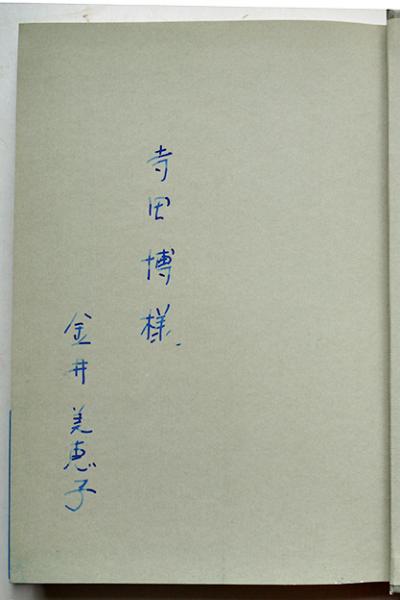 寺田博様
金井美恵子